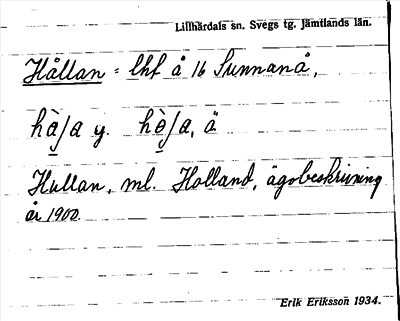 Lillhärdals sn. Svegs tg. Jämtlands län.
Hållan = lhf å 16 Sunnanå,
hà̱ʃa y. hò̱ʃa, ä.
Hullan, ml. Holland, ägobeskrivning
år 1900.
Erik Eriksson 1934.